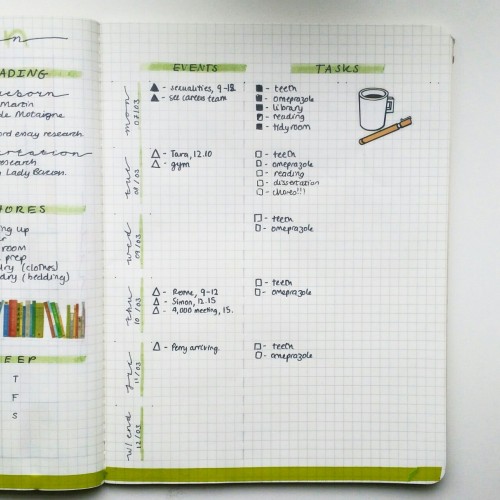 ADING
Martin
de Motaigne
ord essay research
research
Lady Bacon.
ORES
ing up
room
prep
dry (clothes)
dry (bedding)
EEP
T
F
S
EVENTS
TASKS
mon
07/03
▲ - sexualities, 9-12
▲ - see careers team
■ - teeth
■ - omeprazole
■ - library
- reading
■ - tidy room
tue
08/03
△ - Tara, 12.10
△ - gym
□ - teeth
□ - omeprazole
□ - reading
□ - dissertation
□ - chores!!!
wed
09/03
□ - teeth
□ - omeprazole
thu
10/03
△ - Rome, 9-12
△ - Simon, 12.15
△ - 4,000 meeting, 15.
□ - teeth
□ - omeprazole
fri
11/03
△ - Perry arriving.
□ - teeth
□ - omeprazole
w/end
12/03